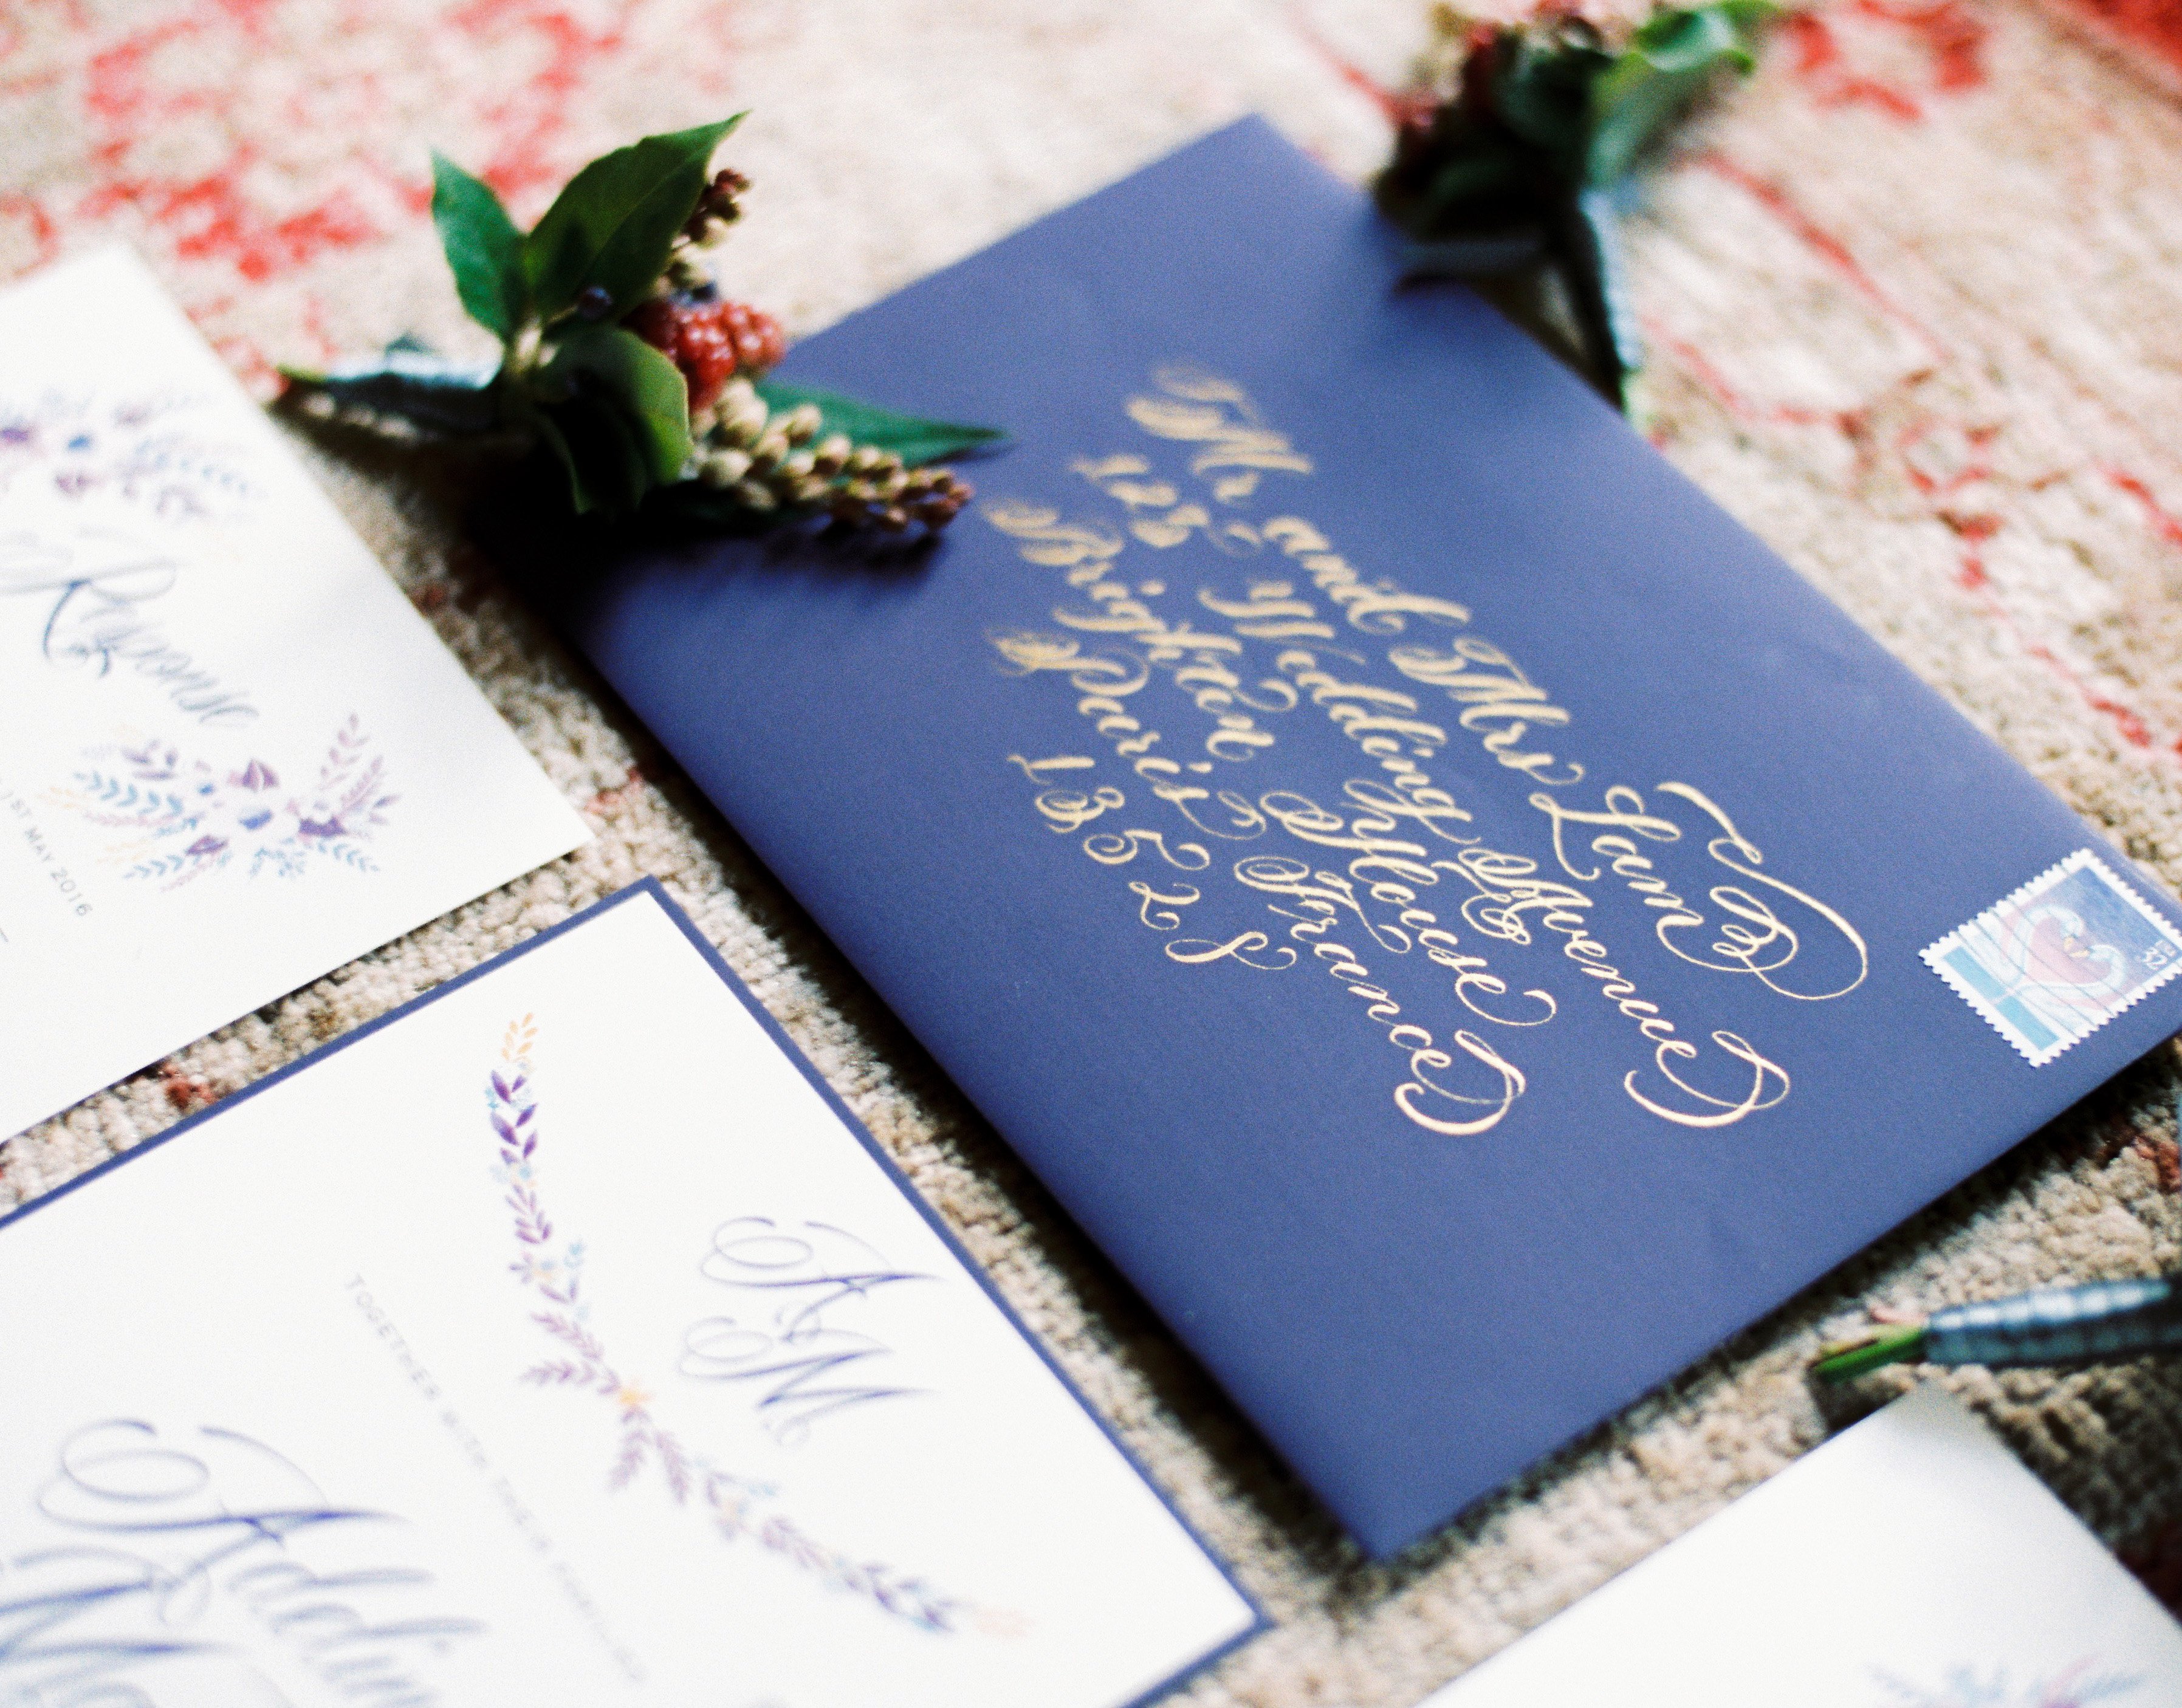 Mr and Mrs Lam
123 Wedding Avenue
Brighton House
Paris France
13528
Response
1ST MAY 2016
A
M
TOGETHER WITH THEIR FAMILIES
32